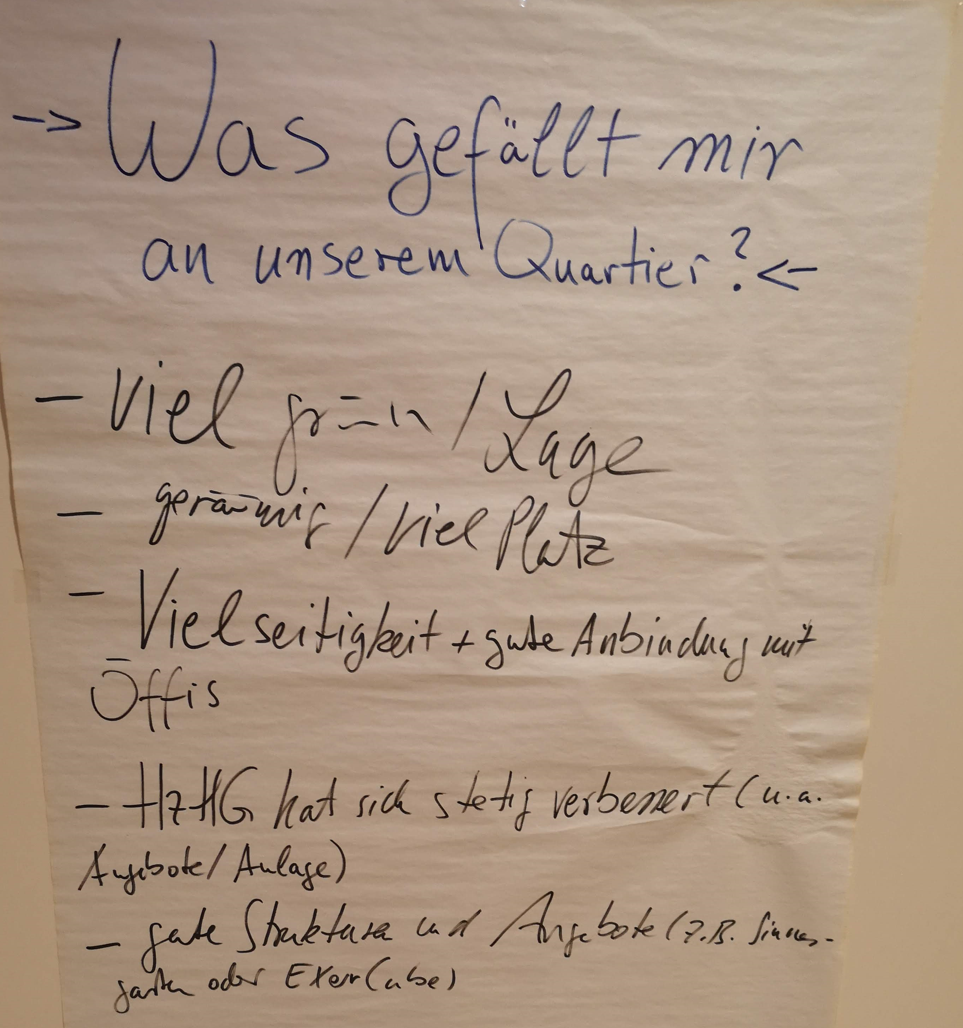 → Was gefällt mir
an unserem Quartier? ←
- Viel grün / Lage
- geräumig / viel Platz
- Vielseitigkeit + gute Anbindung mit
Öffis
- HzHG hat sich stetig verbessert (u.a.
Angebote / Anlage)
- gute Strukturen und Angebote (z.B. Sinnes-
garten oder